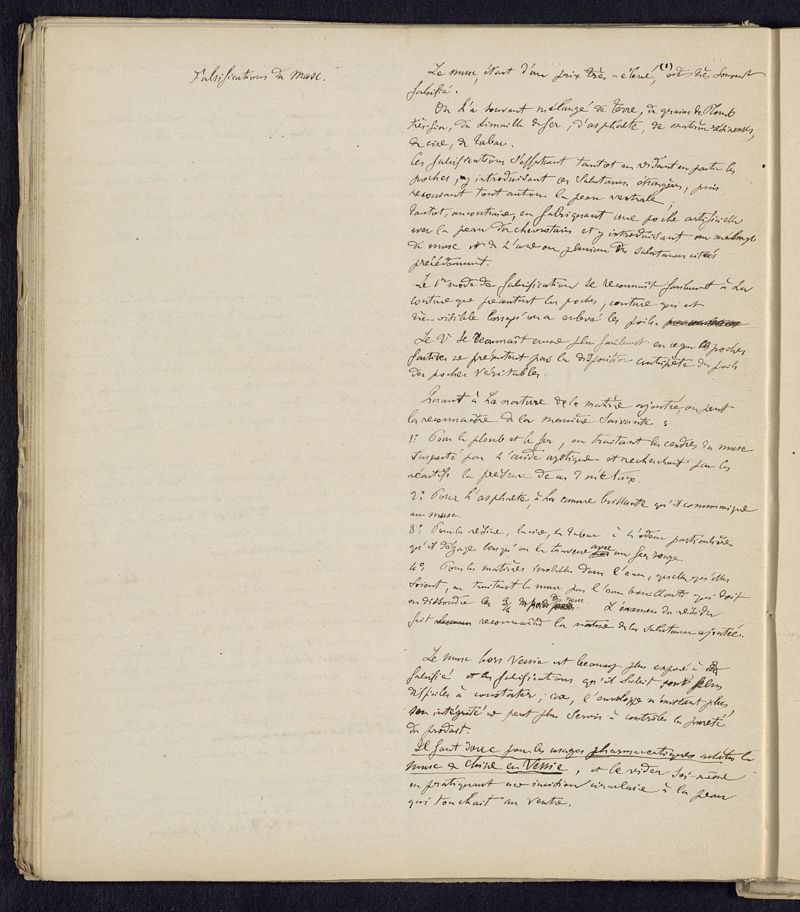 Falsifications du Musc.
Le musc, étant d'un prix très-élevé, (1) est très souvent
falsifié.
On l'a souvent mélangé de terre, de grains de plomb
très-fin, de limaille de fer, d'asphalte, de matières résineuses,
de cire, de tabac.
Ces falsifications s'effectuent tantôt en vidant en partie les
poches, y introduisant ces substances étrangères, puis
recousant tout autour la peau ventrale ;
tantôt, au contraire, en fabriquant une poche artificielle
avec la peau du chevrotain et y introduisant un mélange
de musc et de l'une ou plusieurs des substances citées
précédemment.
Le 1er mode de falsification se reconnaît facilement à la
couture que présentent les poches, couture qui est
très-visible lorsqu'on a enlevé les poils
Le 2e se reconnaît encore plus facilement en ce que les poches
factices ne présentent pas la disposition centripète des poils
des poches véritables.
Quant à la nature de la matière ajoutée, on peut
la reconnaître de la manière suivante :
1° Pour le plomb et le fer, en traitant les cendres du musc
suspecté par l'acide azotique et recherchant par les
réactifs la présence de ces 2 métaux.
2° Pour l'asphalte, à la cassure brillante qu'il communique
au musc.
3° Pour la résine, la cire, le tabac à l'odeur particulière
qu'il dégage lorsqu'on le traverse avec un fer rouge.
4° Pour les matières insolubles dans l'eau, quelles qu'elles
soient, en traitant le musc par l'eau bouillante qui doit
en dissoudre les 3/4 du poids du musc. L'examen du résidu
fait reconnaître la nature de la substance ajoutée.
Le musc hors vessie est beaucoup plus exposé à être
falsifié et les falsifications qu'il subit sont plus
difficiles à constater ; car, l'enveloppe n'existant plus,
son intégrité ne peut plus servir à contrôler la pureté
du produit.
Il faut donc pour les usages pharmaceutiques acheter le
musc de Chine en Vessie, et le vider soi-même
en pratiquant une incision circulaire à la peau
qui touchait au ventre.